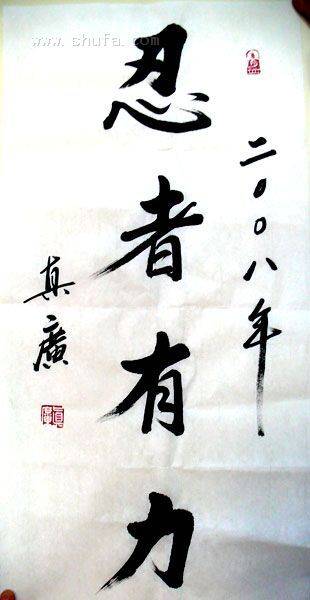 www.shufa.com
二〇〇八年
忍者有力
真廣